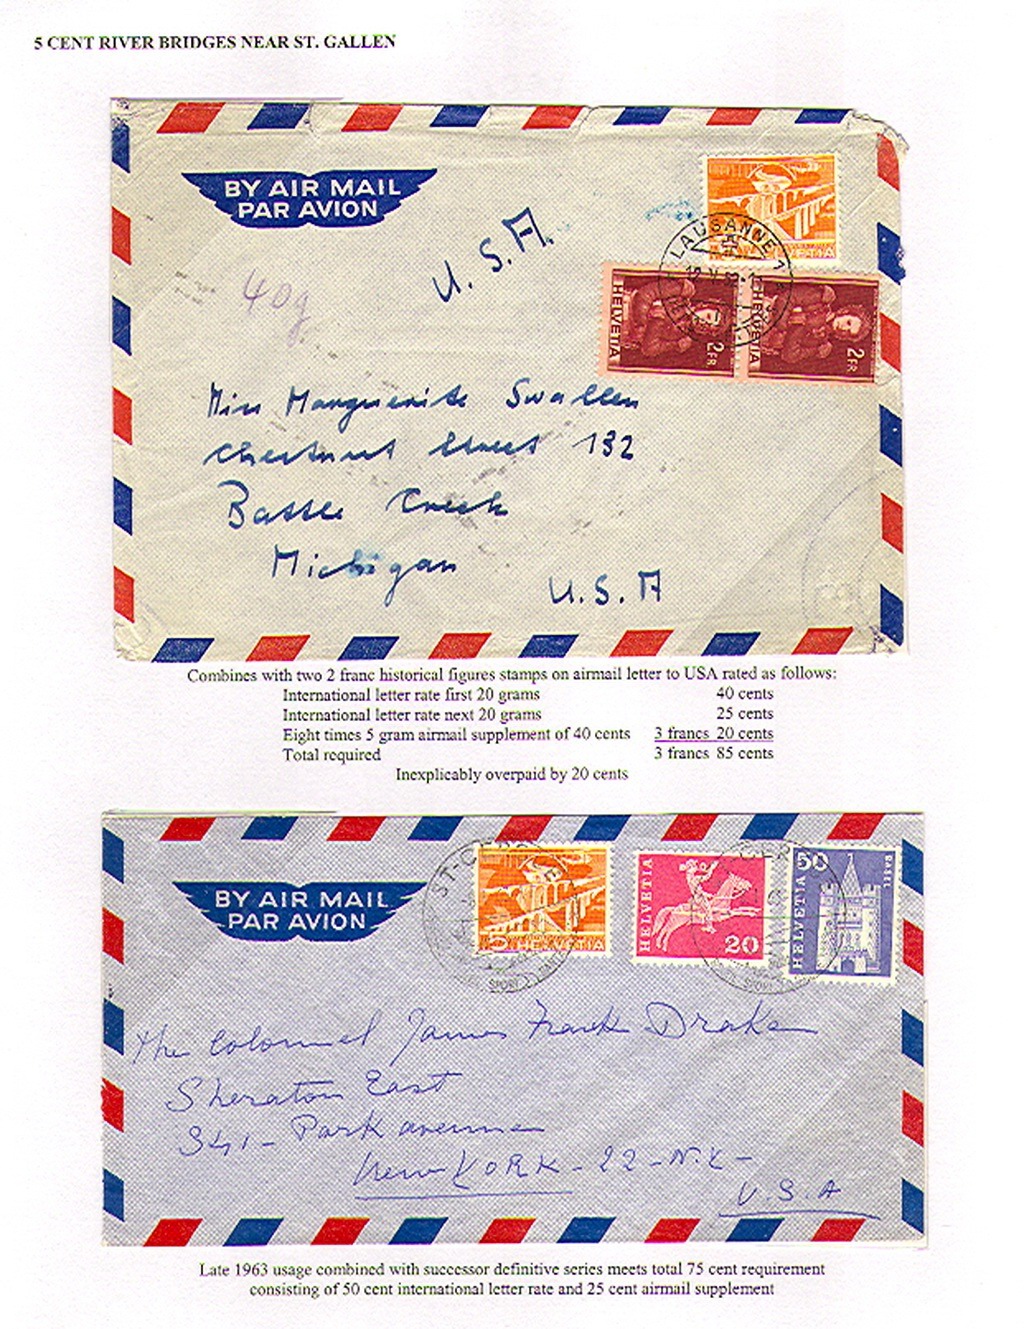 5 CENT RIVER BRIDGES NEAR ST. GALLEN
BY AIR MAIL
PAR AVION
U.S.A.
40g
LAUSANNE 1
HELVETIA
HELVETIA
2 FR.
HELVETIA
2 FR.
Miss Marguerite Swallen
Chestnut Street 132
Battle Creek
Michigan
U.S.A
Combines with two 2 franc historical figures stamps on airmail letter to USA rated as follows:
International letter rate first 20 grams 40 cents
International letter rate next 20 grams 25 cents
Eight times 5 gram airmail supplement of 40 cents 3 francs 20 cents
Total required 3 francs 85 cents
Inexplicably overpaid by 20 cents
BY AIR MAIL
PAR AVION
5 HELVETIA
HELVETIA
20
50
HELVETIA
BASEL
The Colonnel James Frank Drake
Sheraton East
341 - Park avenue
New YORK - 22 - N.Y -
U.S.A
Late 1963 usage combined with successor definitive series meets total 75 cent requirement
consisting of 50 cent international letter rate and 25 cent airmail supplement